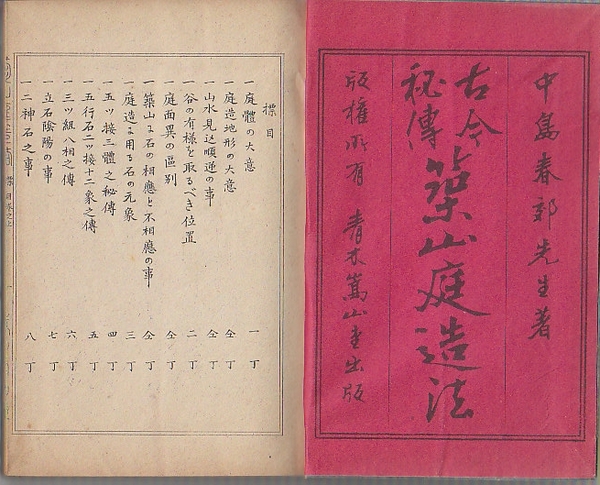 中島春郊先生著
古今
秘傳
築山庭造法
版權所有 青木嵩山堂出版
標目
一庭體の大意 一丁
一庭造地形の大意 仝丁
一山水見込順逆の事 仝丁
一谷の有様を取るべき位置 二丁
一庭面異の區別 仝丁
一築山に石の相應と不相應の事 仝丁
一庭造に用る石の元象 三丁
一五ツ接三體之秘傳 四丁
一五行石二ツ接十二象之傳 五丁
一三ツ組八相之傳 六丁
一立石陰陽の事 七丁
一二神石之事 八丁